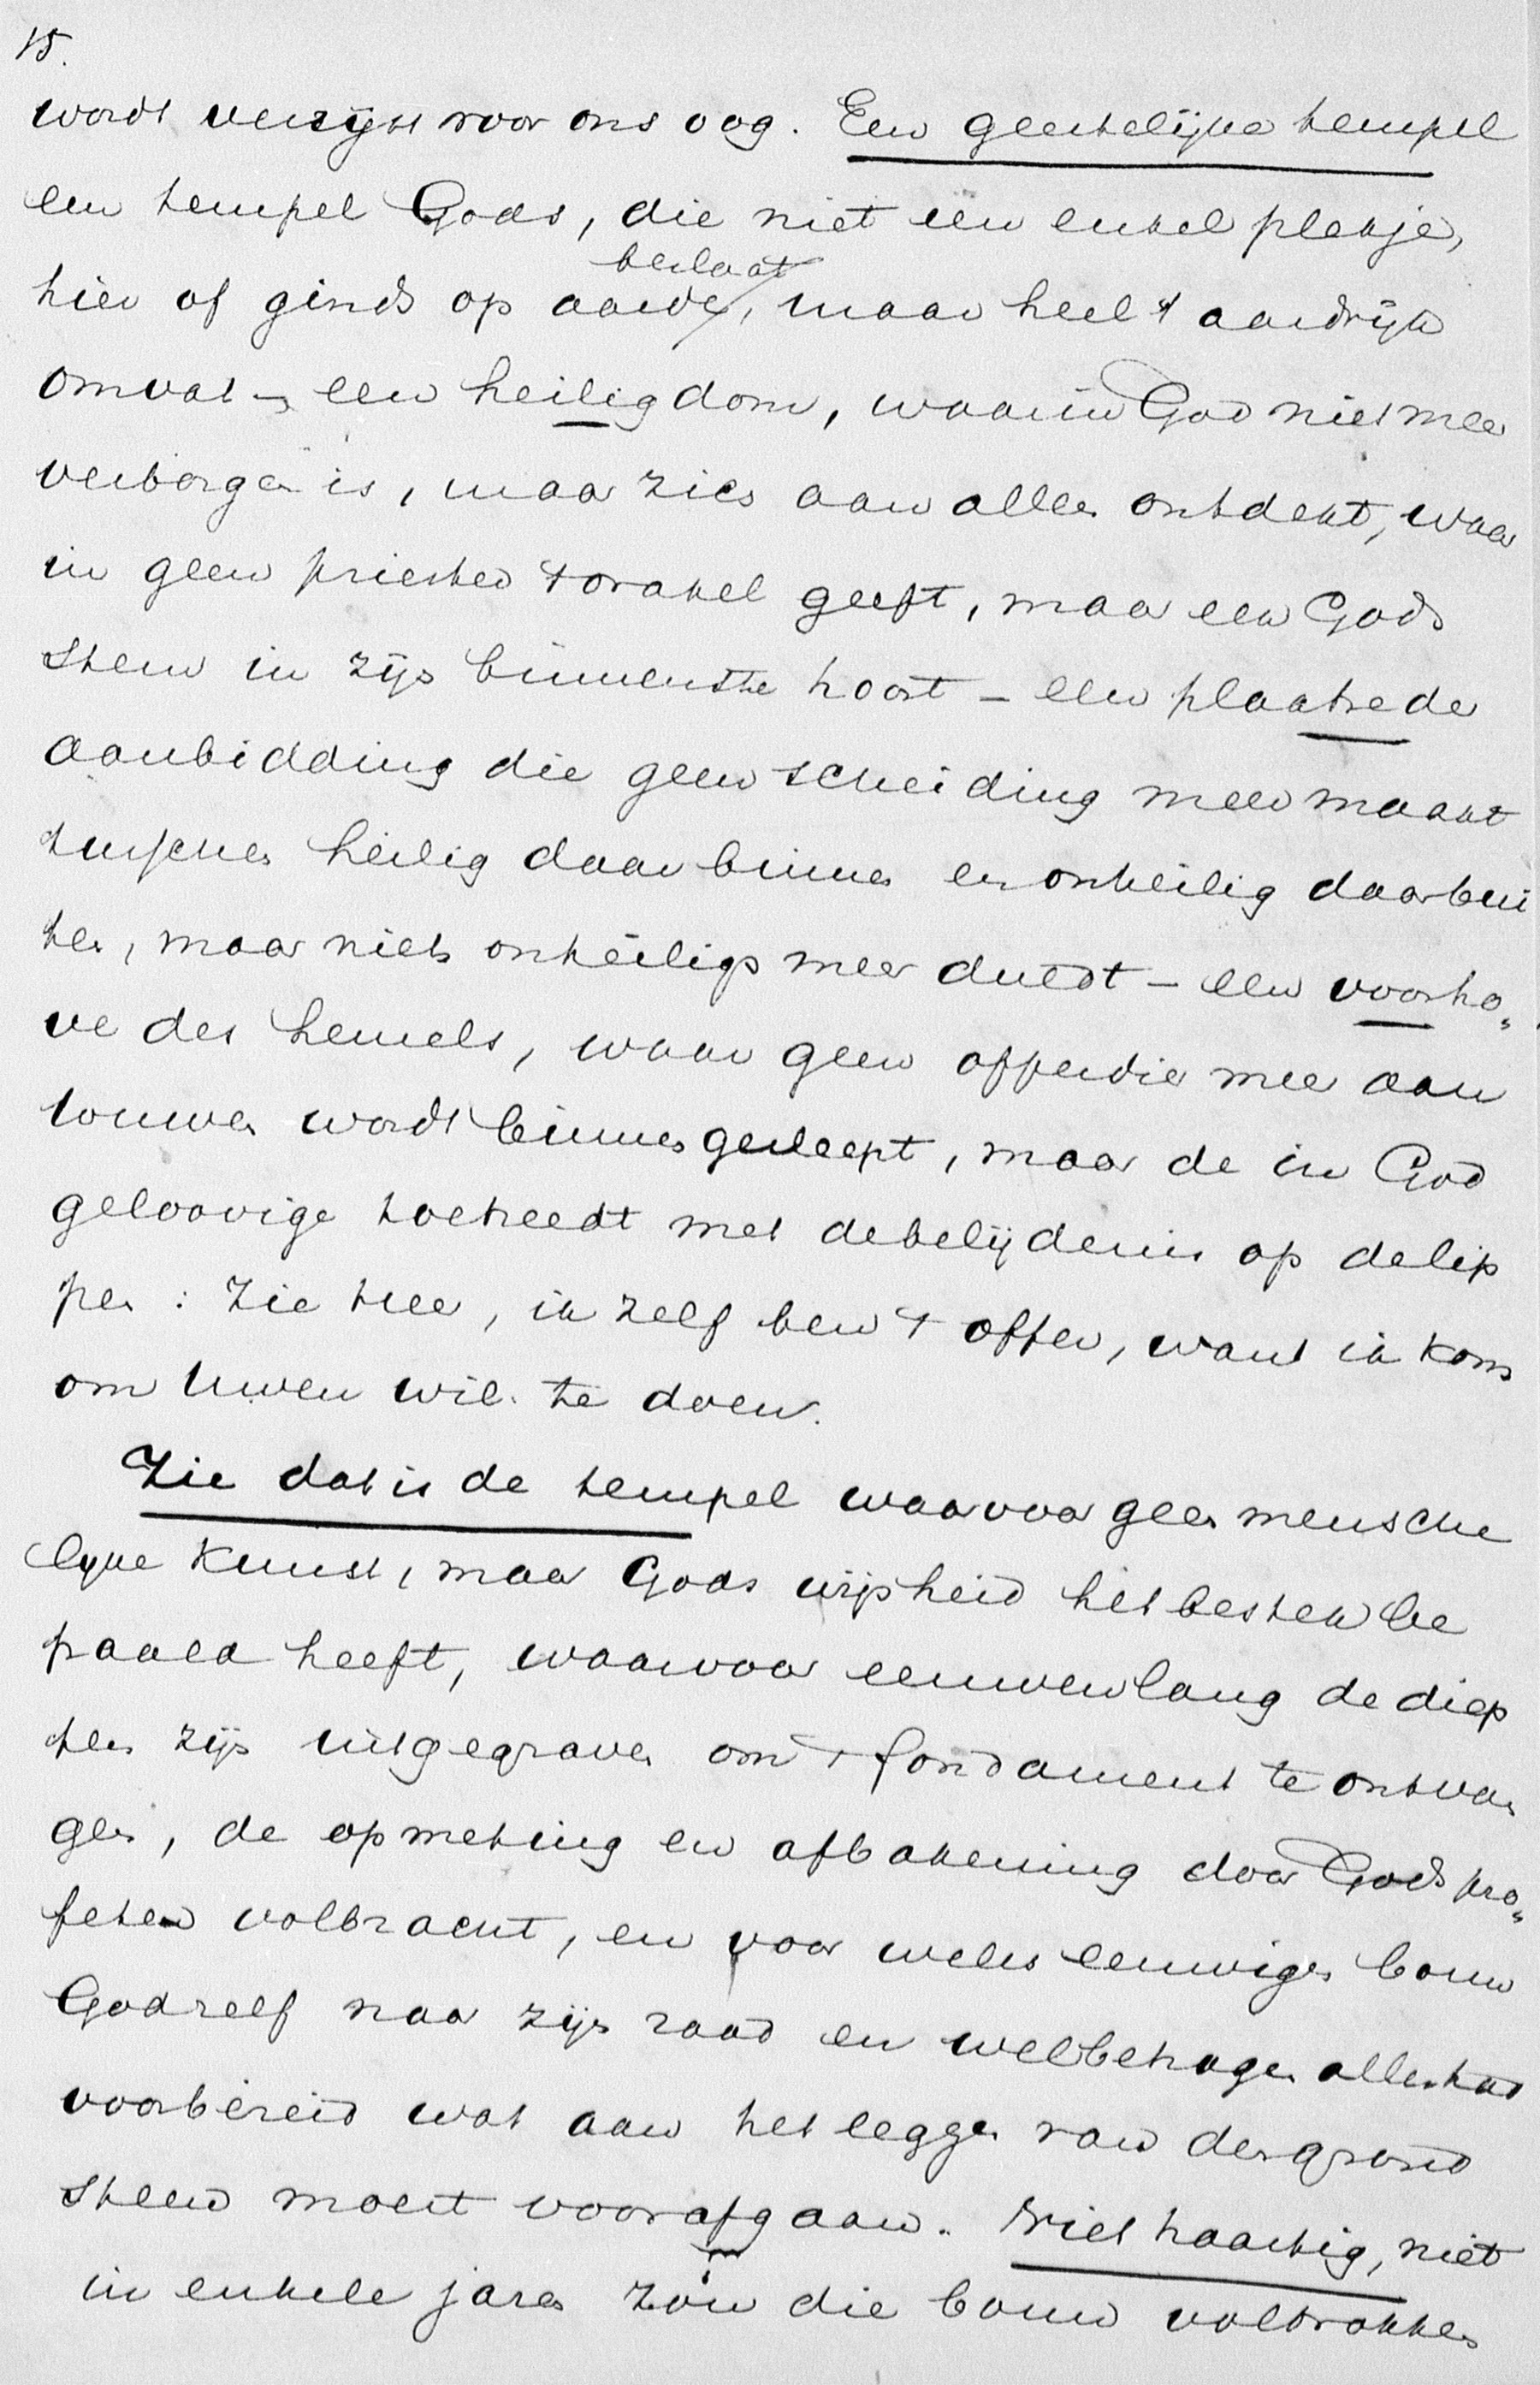 15.
wordt verrijst voor ons oog. Een geestelijke tempel
een tempel Gods, die niet één enkel plekje,
hier of ginds op aarde beslaat, maar heel 't aardrijk
omvat – een heiligdom, waarin God niet meer
verborgen is, maar zich aan allen ontdekt, waar
in geen priester 't orakel geeft, maar elk Gods
stem in zijn binnenste hoort – een plaatse der
aanbidding die geen scheiding meer maakt
tusschen heilig daarbinnen en onheilig daarbui
ten, maar niets onheiligs meer duldt – een voorho„
ve des hemels, waar geen offerdier meer aan
touwen wordt binnengesleept, maar de in God
geloovige toetreedt met de belijdenis op de lip
pen : Zie Heer, ik zelf ben 't offer, want ik kom
om Uwen wil te doen.
Zie dat is de tempel waarvoor geen mensche
lijke kunst, maar Gods wijsheid het bestek be
paald heeft, waarvoor eeuwenlang de diep
ten zijn uitgegraven om 't fondament te ontvan
gen, de opmeting en afbakening door Gods pro„
feten volbracht, en voor welks eeuwigen bouw
God zelf naar zijn raad en welbehagen alles had
voorbereid wat aan het leggen van den grond
steen moest voorafgaan. Niet haastig, niet
in enkele jaren zou die bouw voltrokken